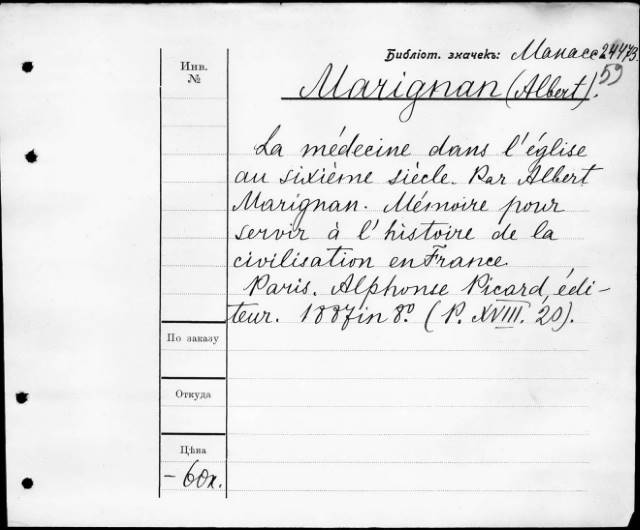 Библіот. значекъ: Манасс 24473.
59
Инв.
№
Marignan (Albert).
La médecine dans l'église
au sixième siècle. Par Albert
Marignan. Mémoire pour
servir à l'histoire de la
civilisation en France.
Paris. Alphonse Picard, édi-
teur. 1887 in 8º. (P. XVIII. 20).
По заказу
Откуда
Цѣна
- 60к.